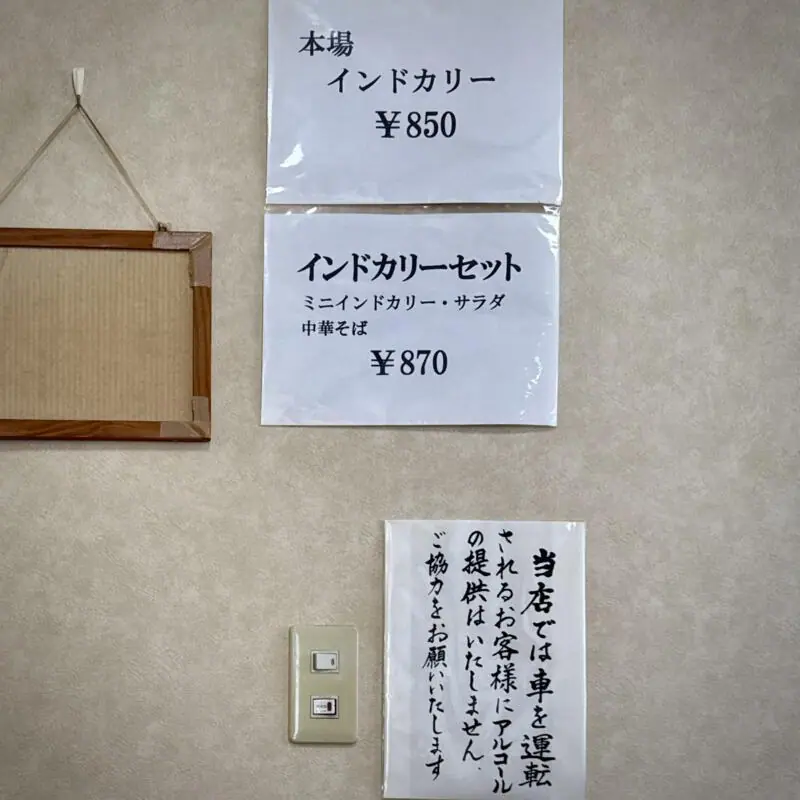 本場
インドカリー
¥850
インドカリーセット
ミニインドカリー・サラダ
中華そば
¥870
当店では車を運転
されるお客様にアルコール
の提供はいたしません。
ご協力をお願いいたします